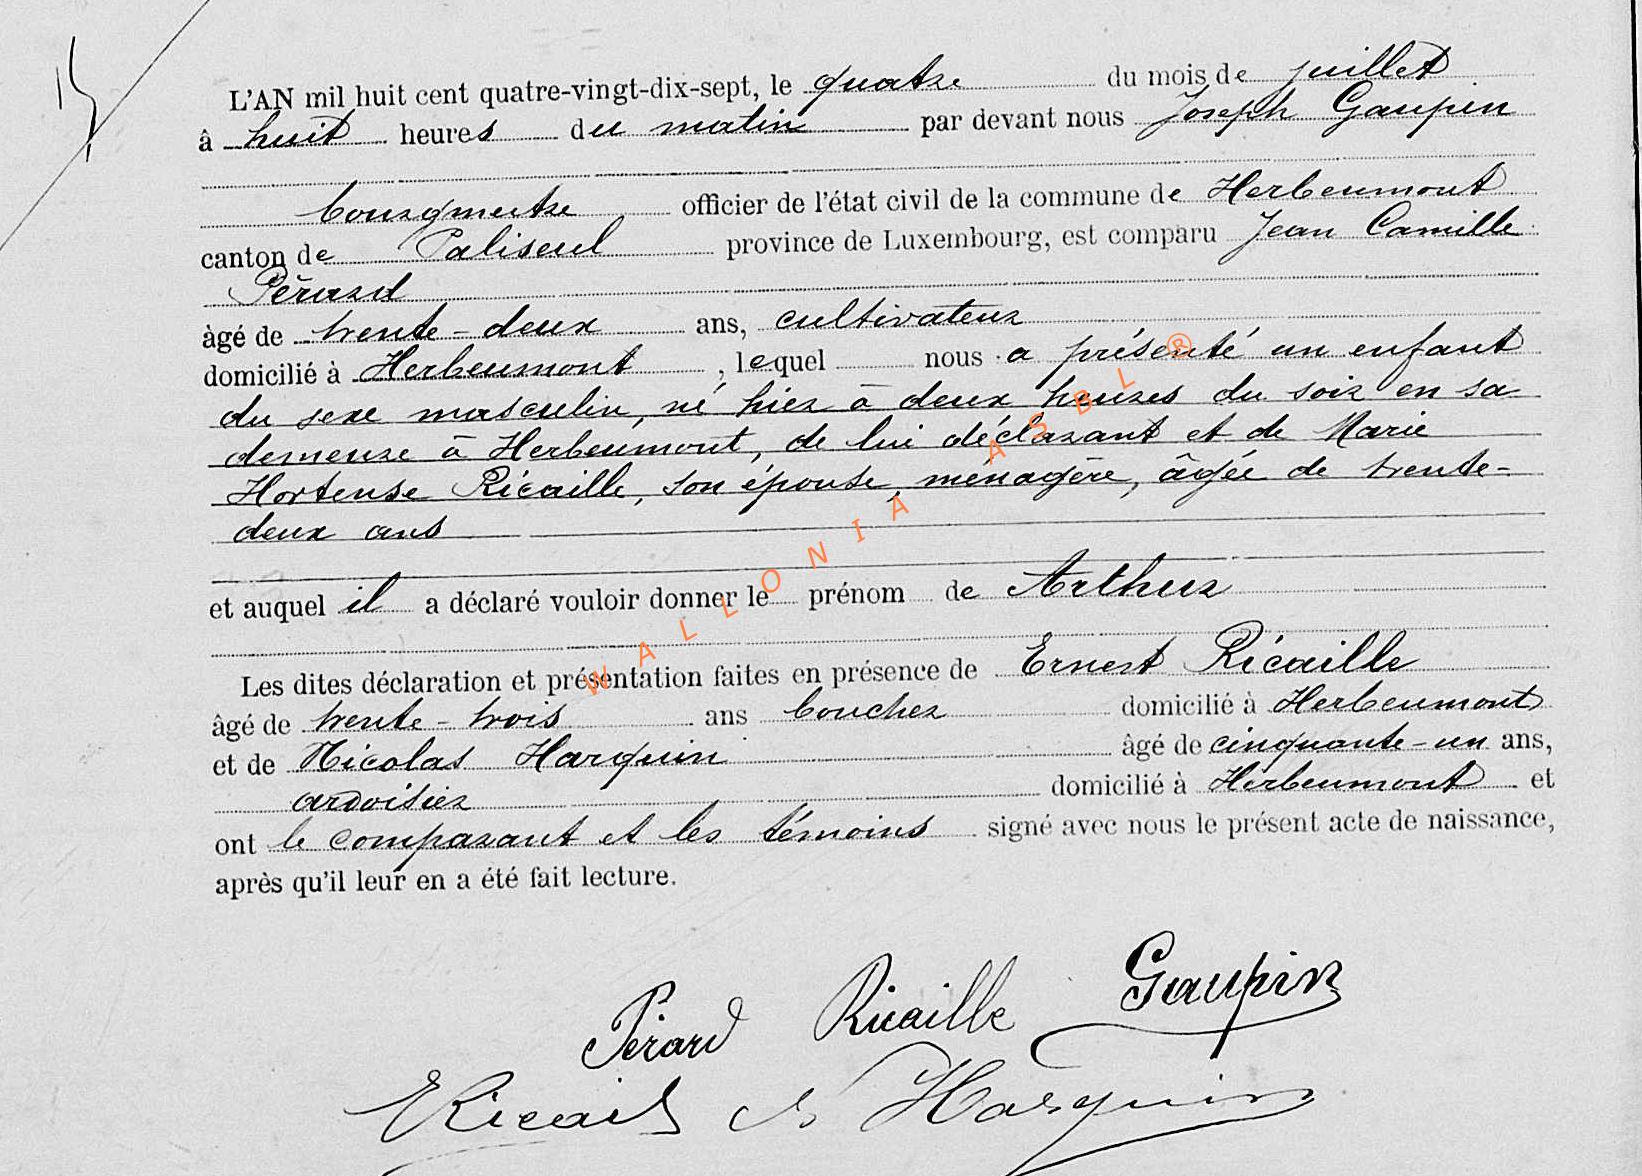 15
L'AN mil huit cent quatre-vingt-dix-sept, le quatre du mois de juillet
à huit heures du matin par devant nous Joseph Gaupin
bourgmestre officier de l'état civil de la commune de Herbeumont
canton de Paliseul province de Luxembourg, est comparu Jean Camille
Pérard
âgé de trente-deux ans, cultivateur
domicilié à Herbeumont, lequel nous a présenté un enfant
du sexe masculin, né hier à deux heures du soir en sa
demeure à Herbeumont, de lui déclarant et de Marie
Hortense Ricaille, son épouse, ménagère, âgée de trente-
deux ans
et auquel il a déclaré vouloir donner le prénom de Arthur
Les dites déclaration et présentation faites en présence de Ernest Ricaille
âgé de trente-trois ans boucher domicilié à Herbeumont
et de Nicolas Harquin âgé de cinquante-un ans,
ardoisier domicilié à Herbeumont et
ont le comparant et les témoins signé avec nous le présent acte de naissance,
après qu'il leur en a été fait lecture.
Pérard Ricaille Gaupin
Harquin
WALLONIA ASBL ®